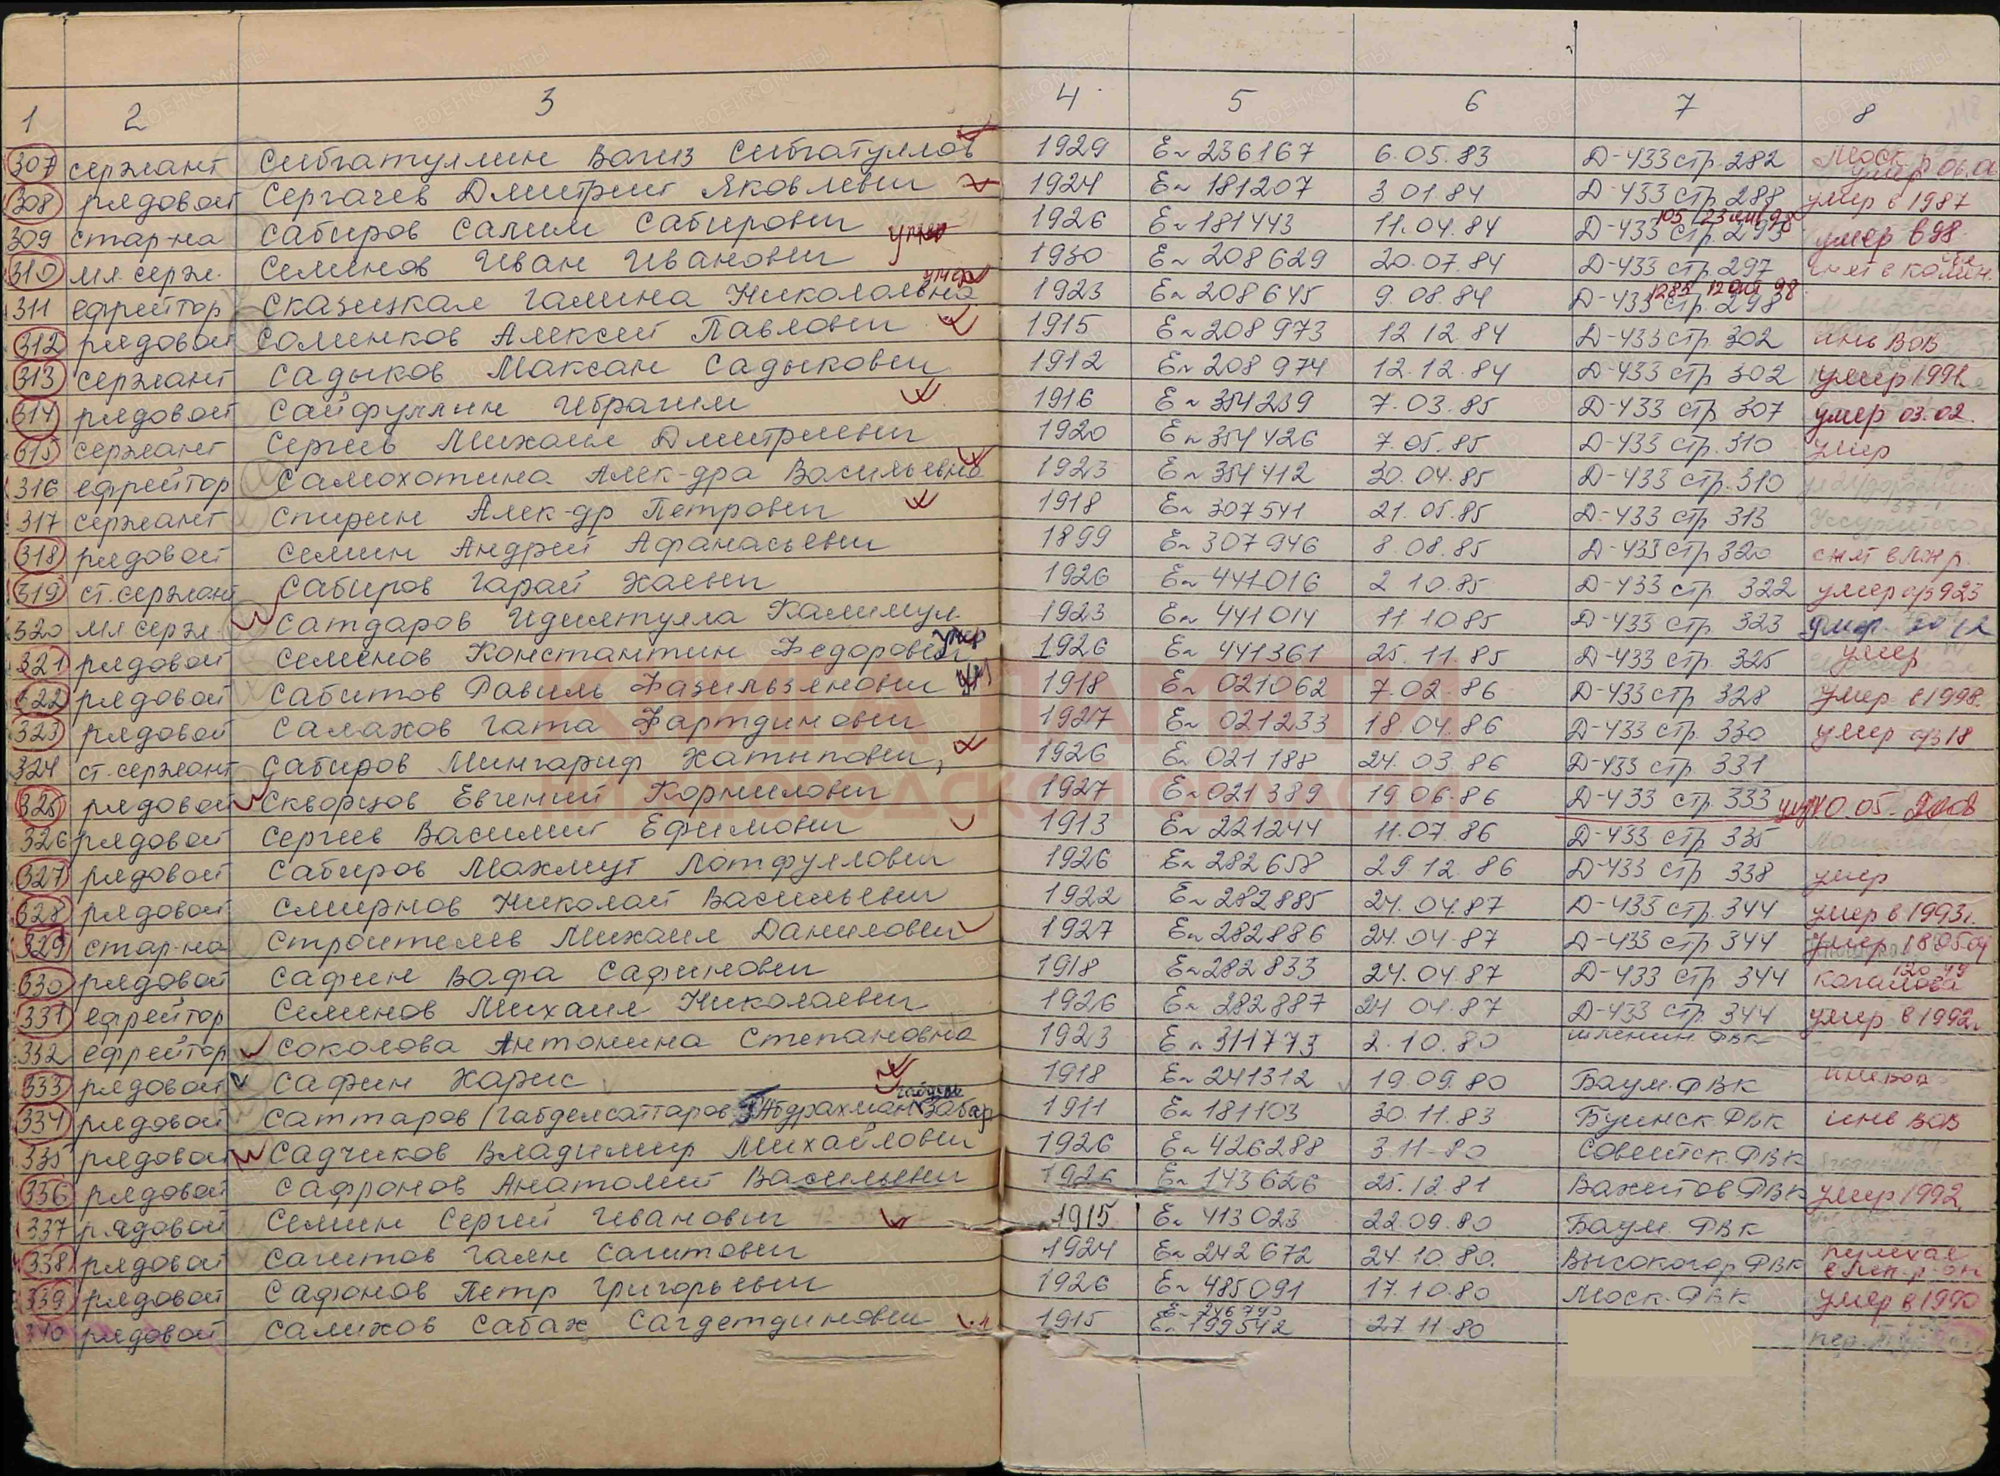 1 2 3 4 5 6 7 8
307 сержант Сибгатуллин Вагиз Сибгатуллов 1929 Е№ 236167 6.05.83 Д-433 стр. 282
308 рядовой Сергачев Дмитрий Яковлевич 1924 Е№ 181207 3.01.84 Д-433 стр. 288 умер в 1987
309 стар-на Сабиров Салим Сабирович умер 1926 Е№ 181443 11.04.84 Д-433 стр. 293 умер в 98
310 мл. серж. Семенов Иван Иванович 1930 Е№ 208629 20.07.84 Д-433 стр. 297
311 ефрейтор Сказецкая Галина Николаевна умер 1923 Е№ 208645 9.08.84 Д-433 стр. 298
312 рядовой Соменков Алексей Павлович 1915 Е№ 208973 12.12.84 Д-433 стр. 302 инв ВОВ
313 сержант Садыков Максам Садыкович 1912 Е№ 208974 12.12.84 Д-433 стр. 302 умер 1991
314 рядовой Сайфуллин Ибрагим 1916 Е№ 354239 7.03.85 Д-433 стр. 307 умер 03.02.
315 сержант Сергеев Михаил Дмитриевич 1920 Е№ 354426 7.05.85 Д-433 стр. 310 умер
316 ефрейтор Самохотина Алек-дра Васильевна 1923 Е№ 354412 30.04.85 Д-433 стр. 310
317 сержант Спирин Алек-др Петрович 1918 Е№ 307541 21.05.85 Д-433 стр. 313
318 рядовой Семин Андрей Афанасьевич 1899 Е№ 307946 8.08.85 Д-433 стр. 320
319 ст. сержант Сабиров Гарай Хаевич 1926 Е№ 441016 2.10.85 Д-433 стр. 322
320 мл серж. Сатдаров Идиятулла Калимул 1923 Е№ 441014 11.10.85 Д-433 стр. 323
321 рядовой Семенов Константин Федорович умер 1926 Е№ 441361 25.11.85 Д-433 стр. 325 умер
322 рядовой Сабитов Равиль Фазильзянович 1918 Е№ 021062 7.02.86 Д-433 стр. 328 умер в 1998.
323 рядовой Салахов Гата Фартдинович 1927 Е№ 021233 18.04.86 Д-433 стр. 330
324 ст. сержант Сабиров Мингариф Хатыпович 1926 Е№ 021188 24.03.86 Д-433 стр. 331
325 рядовой Скворцов Евгений Корнилович 1927 Е№ 021389 19.06.86 Д-433 стр. 333
326 рядовой Сергеев Василий Ефимович 1913 Е№ 221244 11.07.86 Д-433 стр. 335
327 рядовой Сабиров Махмут Лотфуллович 1926 Е№ 282658 29.12.86 Д-433 стр. 338 умер
328 рядовой Смирнов Николай Васильевич 1922 Е№ 282885 24.04.87 Д-433 стр. 344 умер в 1993г.
329 стар-на Строителев Михаил Данилович 1927 Е№ 282886 24.04.87 Д-433 стр. 344 умер 180504
330 рядовой Сафин Вафа Сафинович 1918 Е№ 282833 24.04.87 Д-433 стр. 344
331 ефрейтор Семенов Михаил Николаевич 1926 Е№ 282887 24.04.87 Д-433 стр. 344 умер в 1992г
332 ефрейтор Соколова Антонина Степановна 1923 Е№ 311773 2.10.80
333 рядовой Сафин Харис 1918 Е№ 241312 19.09.80 Баум. ФВК
334 рядовой Саттаров (Габделсаттаров) Абдрахман 1911 Е№ 181103 30.11.83 Буинск ФВК инв ВОВ
335 рядовой Садчиков Владимир Михайлович 1926 Е№ 426288 3.11-80 Советск. ФВК
336 рядовой Сафронов Анатолий Васильевич 1926 Е№ 143626 25.12.81 Вахитов ФВК умер 1992
337 рядовой Семин Сергей Иванович 1915 Е№ 413023 22.09.80 Баум. ФВК
338 рядовой Сагитов Галям Сагитович 1924 Е№ 242672 24.10.80. Высокогор ФВК
339 рядовой Сафонов Петр Григорьевич 1926 Е№ 485091 17.10.80 Моск. ФВК умер в 1990
340 рядовой Салихов Сабах Сагдетдинович 1915 Е№ 199542 27.11.80
КНИГА ПАМЯТИ
НИЖЕГОРОДСКОЙ ОБЛАСТИ